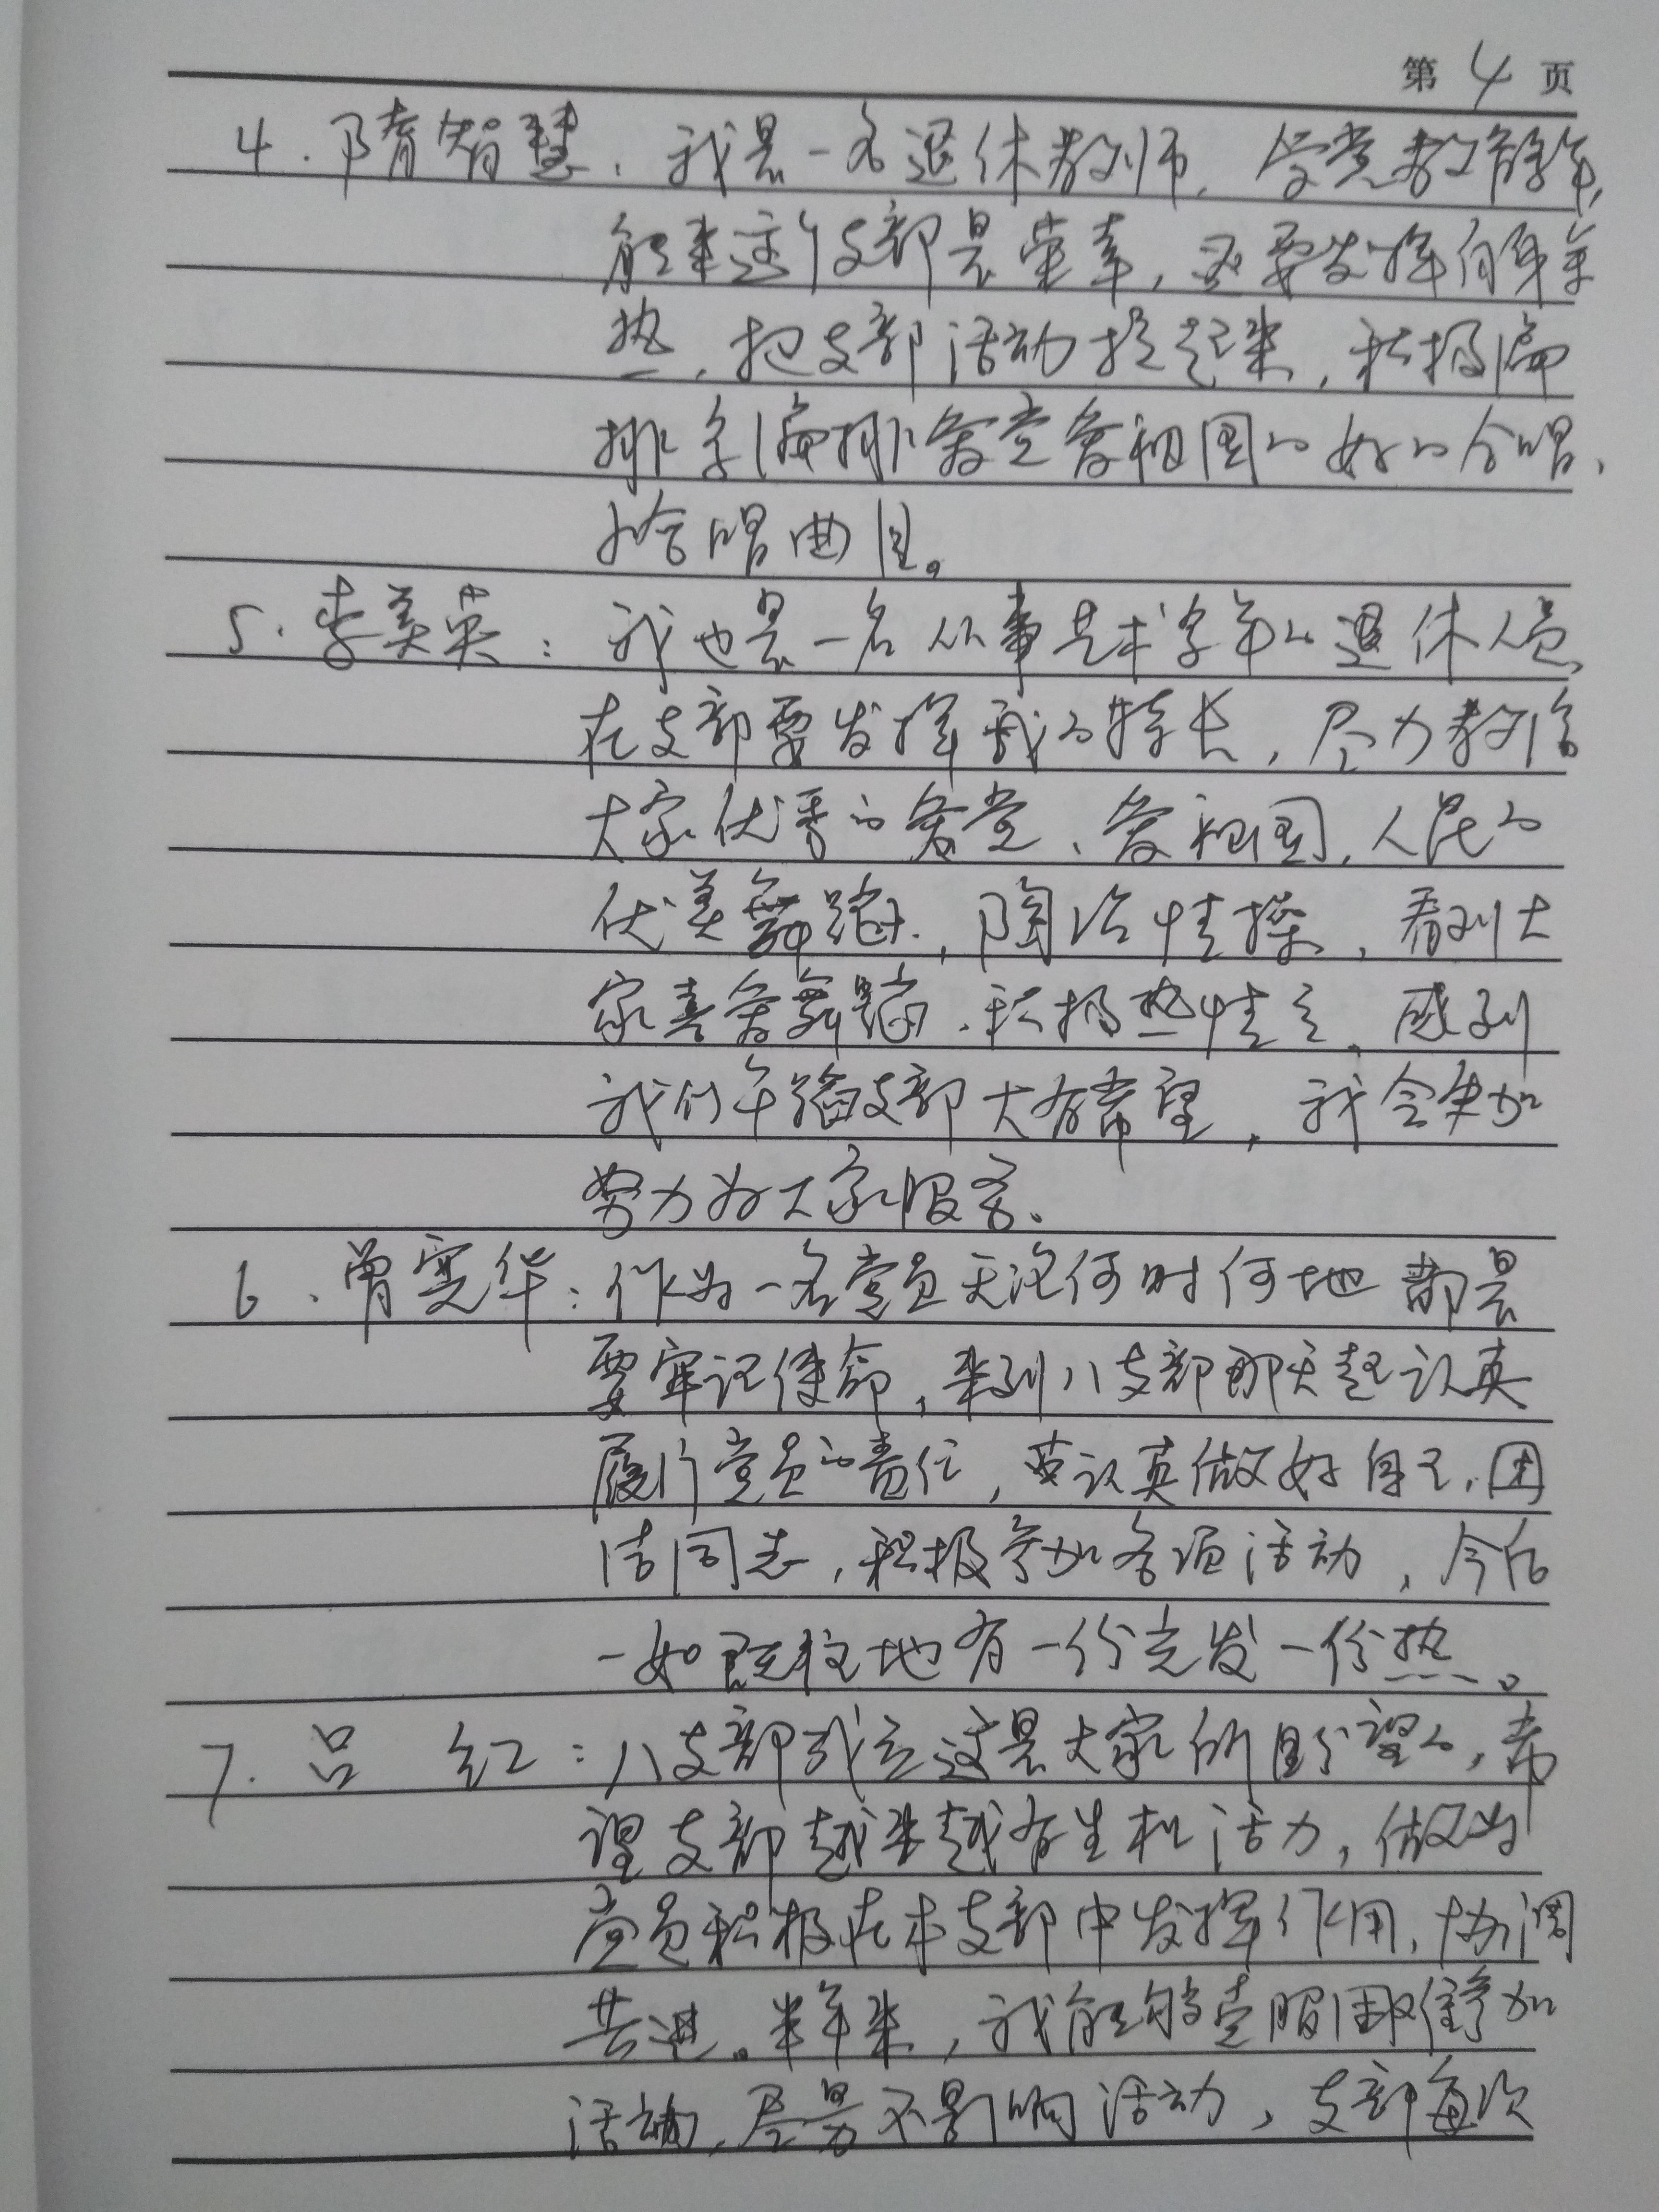 第 4 页
4. 隋智慧、我是一名退休教师,受党教育多年,
能来这个支部是荣幸,还要发挥自身余
热,把支部活动搞起来,积极编
排多编排爱党爱祖国的好的合唱、
小合唱曲目。
5. 李美英:我也是一名从事艺术多年的退休人员,
在支部要发挥我的特长,尽力教给
大家优秀的爱党、爱祖国,人民的
优美舞蹈,陶冶情操,看到大
家喜爱舞蹈、积极热情高,感到
我们舞蹈支部大有希望,我会更加
努力为大家服务。
6、曾雯华:作为一名党员无论何时何地都是
要牢记使命,来到八支部那天起认真
履行党员的责任,要认真做好自己,团
结同志,积极参加各项活动,今后
一如既往地有一份光发一份热。
7. 吕 红:八支部成立这是大家所盼望的,希
望支部越来越有生机活力,做为
党员积极在本支部中发挥作用,协调
共进。半年来,我能够克服困难参加
活动,尽量不影响活动,支部每次